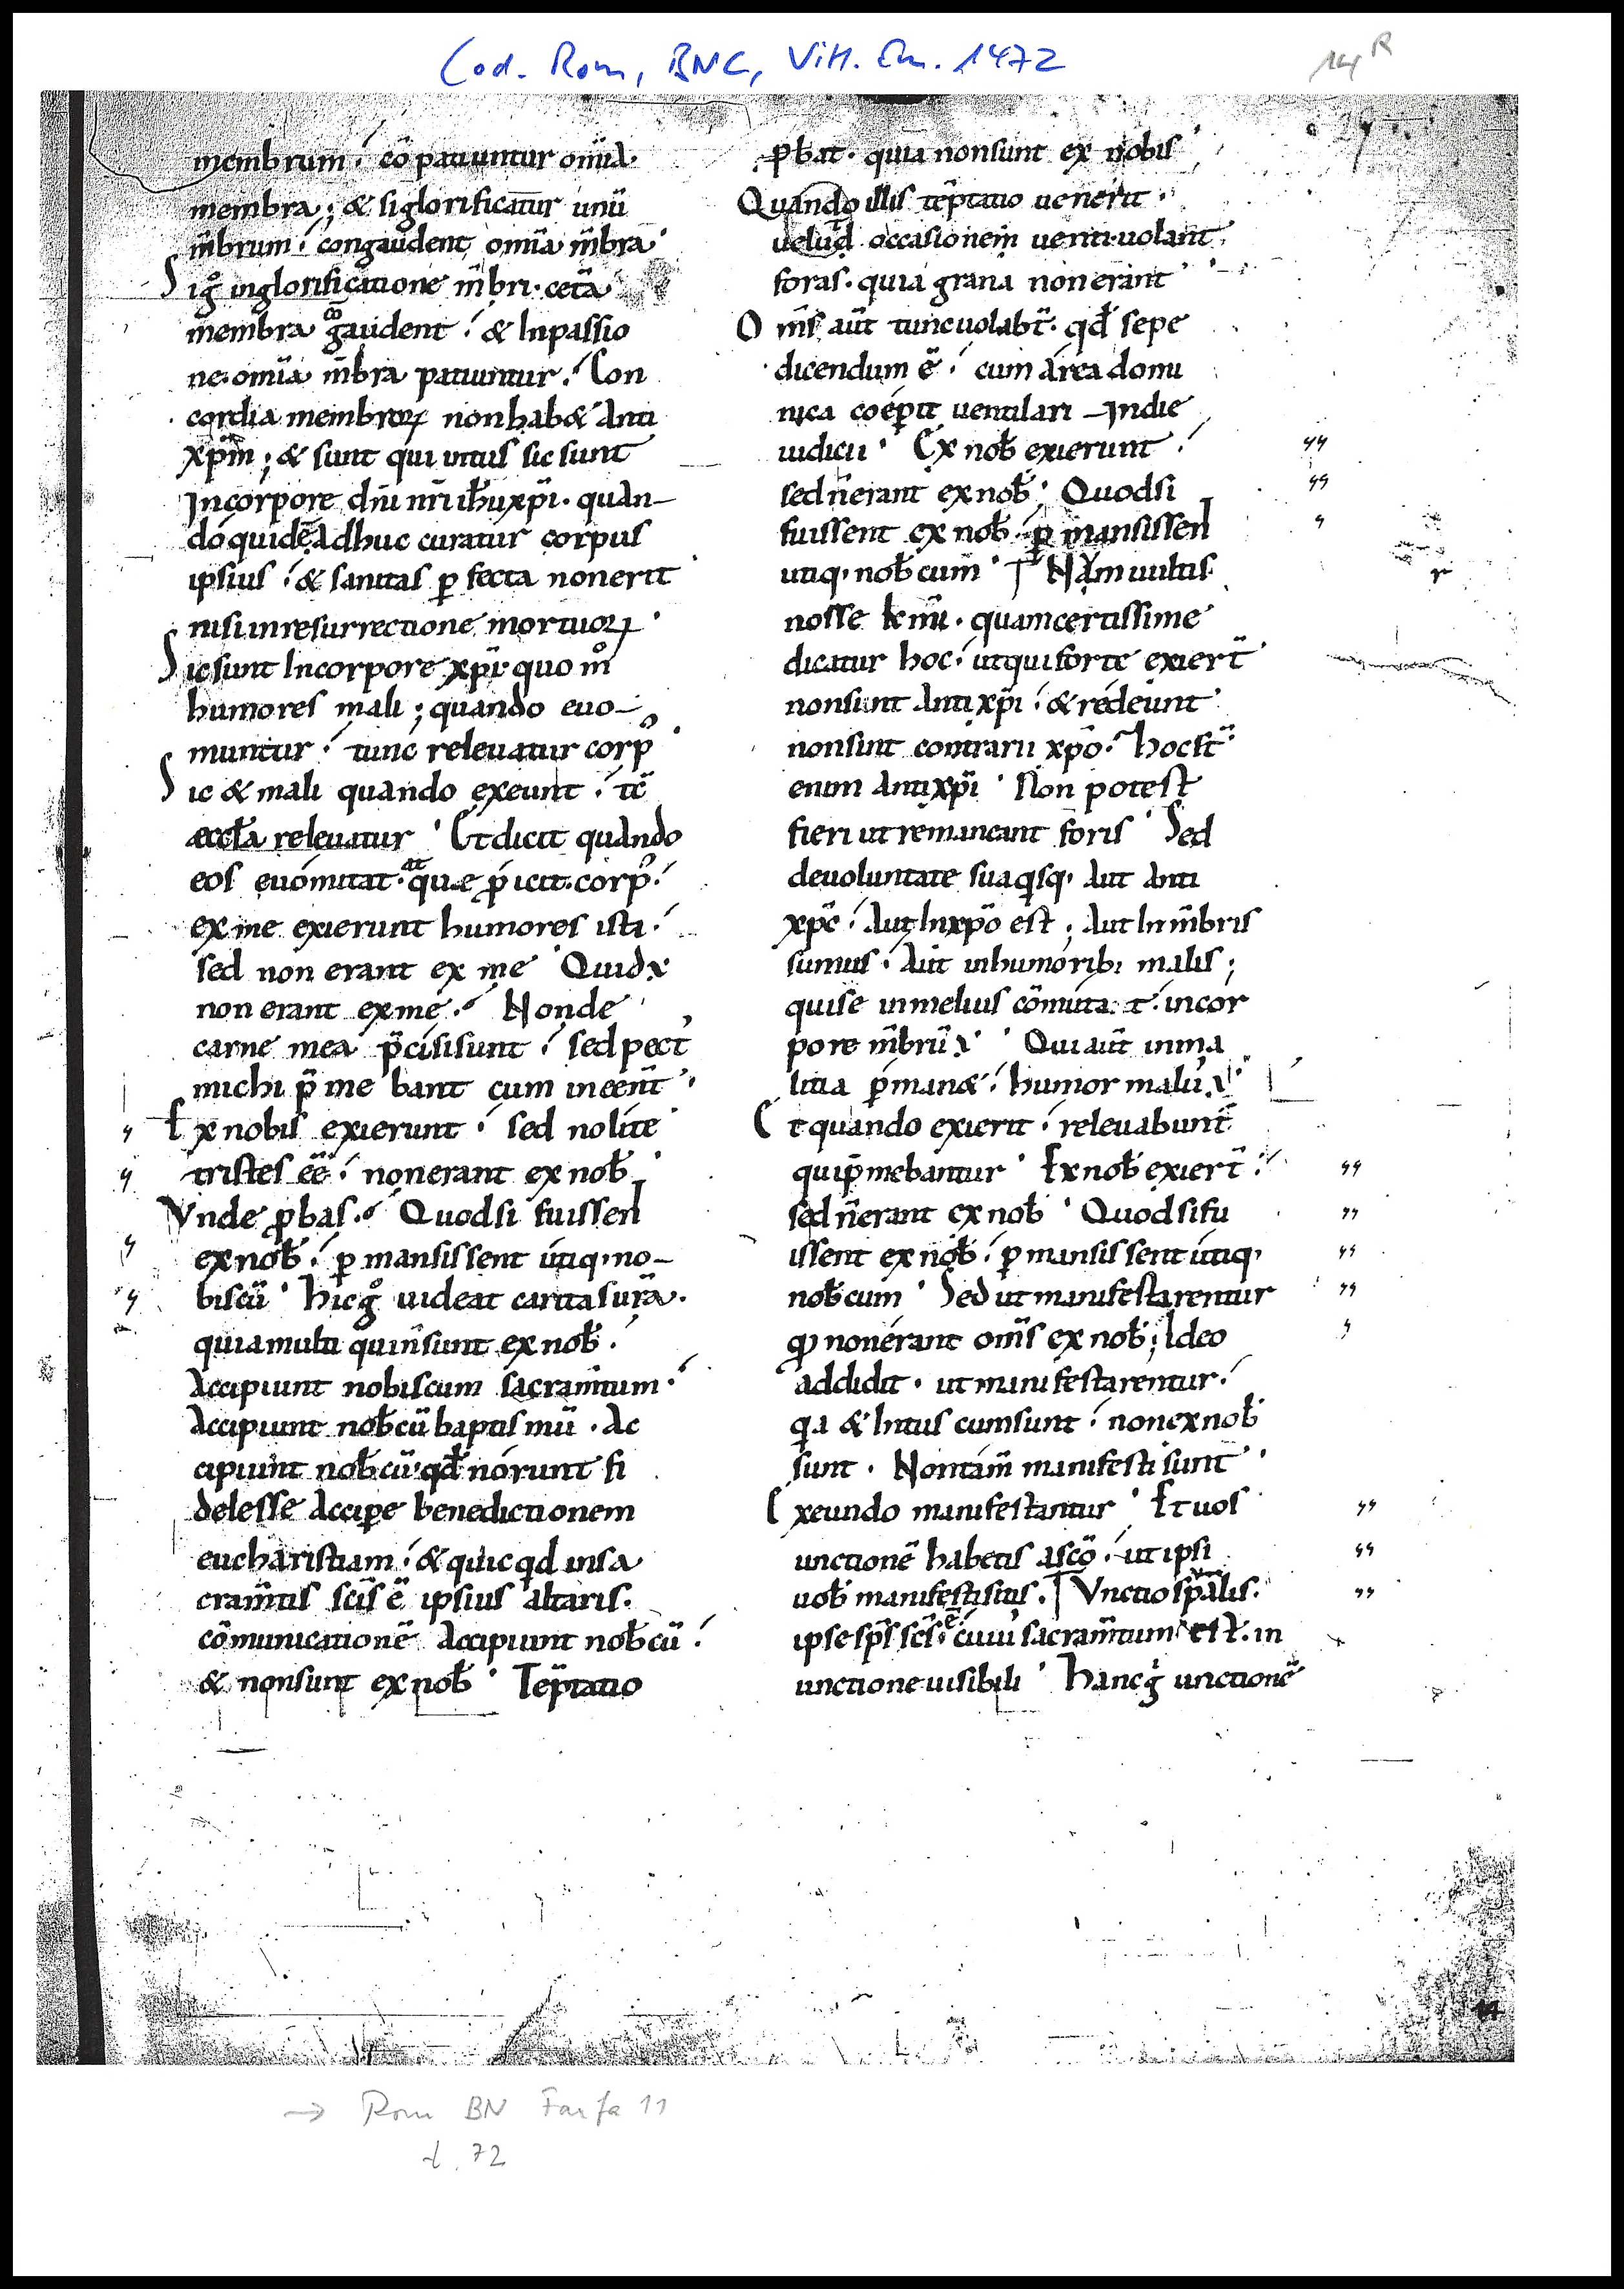 Cod. Rom, BNC, Vitt. Em. 1472
14R
membrum. cō patiuntur om̄ia.
membra; & siglorificatur unū
m̄brum. congaudent om̄ia m̄bra
Sigͦ inglorificatione m̄bri. ceta᷑
membra cōgaudent. & Inpassio
ne. om̄ia m̄bra patiuntur. Con
cordia membroꝝ nonhab& Anti
xp̄m; & sunt qui intus sic sunt
Incorpore dn̄i nr̄i ihuxp̄i. quan-
do quidēAdhuc curatur corpus
ipsius. & sanitas ꝑfecta nonerit
nisi inresurrectione mortuoꝝ.
Sicsunt Incorpore xp̄i. quo mͦ
humores mali; quando euo-
muntur. tunc releuatur corpꝰ.
Sic & mali quando exeunt. tc̄
æccła releuatur. Et dicit quando
eos euomitat. atquæ p̄icit. corpꝰ.
ex me exierunt humores isti.
sed non erant ex me Quid ÷
non erant exme. Nonde
carne mea p̄cisisunt. sed pect᷑
michi p̄me bant cum ineēn̄t.
Ex nobis exierunt. sed nolite
tristes eē. nonerant ex nob̄.
Vnde ꝓbas. Quodsi fuissent
ex nob̄. ꝑmansissent utiq; no-
biscū. Hicgͦ uideat caritasur̄a.
quia multi quin̄sunt ex nob̄.
Accipiunt nobiscum sacram̄tum.
Accipiunt nob̄cū baptismū. Ac
cipiunt nob̄cū qd̄ norunt fi
delesse Accipe benedictionem
eucharistiam. & quicqd insa
cram̄tis scīs ē ipsius altaris.
cōmunicationē Accipiunt nob̄cū.
& nonsunt ex nob̄. Tēptatio
ꝓbat. quia nonsunt ex nobis
Quando illis tēptatio uenerit.
uelud occasionem uenti. uolant
foras. quia grana nonerant
Om̄s aūt tuncuolabt᷑. qd̄ sepe
dicendum ē. cum área domi
nica coeperit uentilari Indie
iudicii. Ex nob̄ exierunt.
sedn̄erant exnob̄. Quodsi
fuissent ex nob̄. ꝑmansissent
utiq; nob̄cum. Nam uultis
nosse km̄i. quamcertissime
dicatur hoc. utquiforte exiert᷑
nonsunt Antixp̄i. & redeunt
nonsint contrarii xp̄o. Hocst᷑
enim Antixp̄i. Non potest
fieri ut remaneant foris. Sed
deuoluntate suaqisq; Aut Anti
xp̄c. Aut Inxp̄o est; Aut Inm̄bris
sumus. Aut inhumorib; malis;
quise inmelius cōmuta t. incor
pore m̄brū ÷. Qui aūt inma
litia ꝑman&. humor malus ÷
Et quando exierit. releuabunt᷑
quip̄mebantur. Ex nob̄ exiert᷑.
sed n̄erant ex nob̄. Quod sifu
issent ex nob̄. ꝑmansissent utiq;
nob̄cum. Sed ut manifestarentur
qͦ nonerant om̄s ex nob̄; Ideo
addidit. ut manifestarentur.
qia & Intus cumsunt. nonexnob̄
sunt. Nontam̄ manifesti sunt.
Exeundo manifestantur. Et uos
unctionē habetis ascō. ut ipsi
uob̄ manifestisitis. Vnctio spālis.
ipse sp̄s scs̄ ē. cuiuꝰ sacram̄tum est. in
unctione uisibili. Hancgͦ unctionē
14
→ Rom BN Farfa 11
t. 72